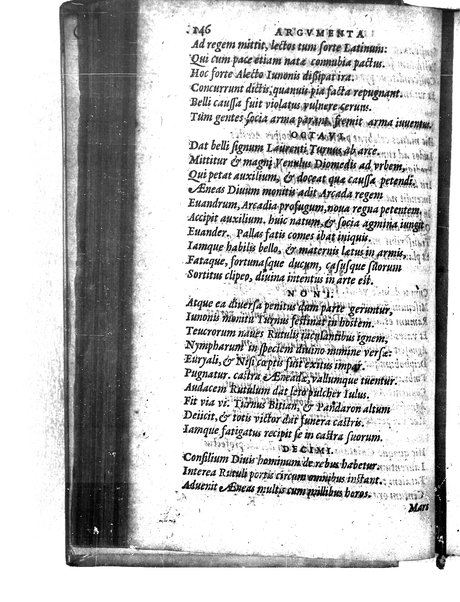 146 ARGVMENTA
Ad regem mittit, lectos tum sorte Latinum:
Qui cum pace etiam natæ connubia pactus.
Hoc forte Alecto Iunonis dissipat ira.
Concurrunt dictis, quanuis pia facta repugnant.
Belli caussa fuit violatus vulnere ceruus.
Tùm gentes socia arma parant, fremit arma iuuentus.
OCTAVI.
Dat belli signum Laurenti Turnus ab arce.
Mittitur & magni Venulus Diomedis ad vrbem,
Qui petat auxilium, & doceat qua caussa petendi.
Æneas Diuûm monitis adit Arcada regem
Euandrum, Arcadia profugum, noua regna petentem,
Accipit auxilium. huic natum, & socia agmina iungit
Euander. Pallas fatis comes ibat iniquis.
Iamque habilis bello, & maternis lætus in armis,
Fataque, fortunasque ducum, casusque suorum
Sortitus clipeo, diuina intentus in arte est.
NONI.
Atque ea diuersa penitus dum parte geruntur,
Iunonis monitu Turnus festinat in hostem.
Teucrorum naues Rutulis iaculantibus ignem,
Nympharum in speciem diuino numine versæ:
Euryali, & Nisi cœptis fuit exitus impar.
Pugnatur. castra Æneadæ, vallumque tuentur.
Audacem Rutulum dat leto pulcher Iulus.
Fit via vi. Turnus Bitian, & Pandaron altum
Deiicit, & totis victor dat funera castris.
Iamque fatigatus recipit se in castra suorum.
DECIMI.
Consilium Diuis hominum de rebus habetur.
Interea Rutuli portis circum omnibus instant.
Aduenit Æneas multis cum millibus heros.
Mars